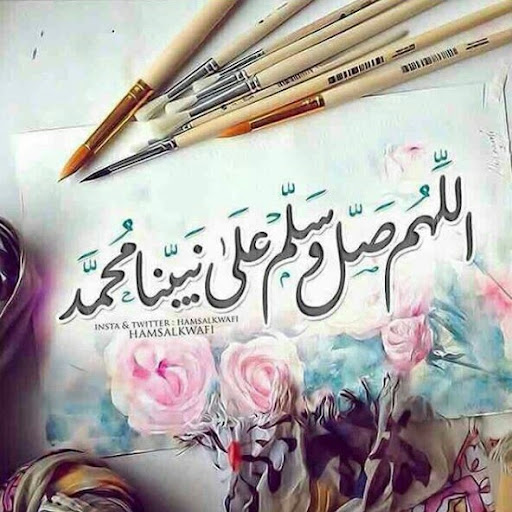 اللَّهُم صَلِّ وسَلِّم عَلىٰ نَبِيِّنا مُحمَّد
INSTA & TWITTER : HAMSALKWAFI
HAMSALKWAFI